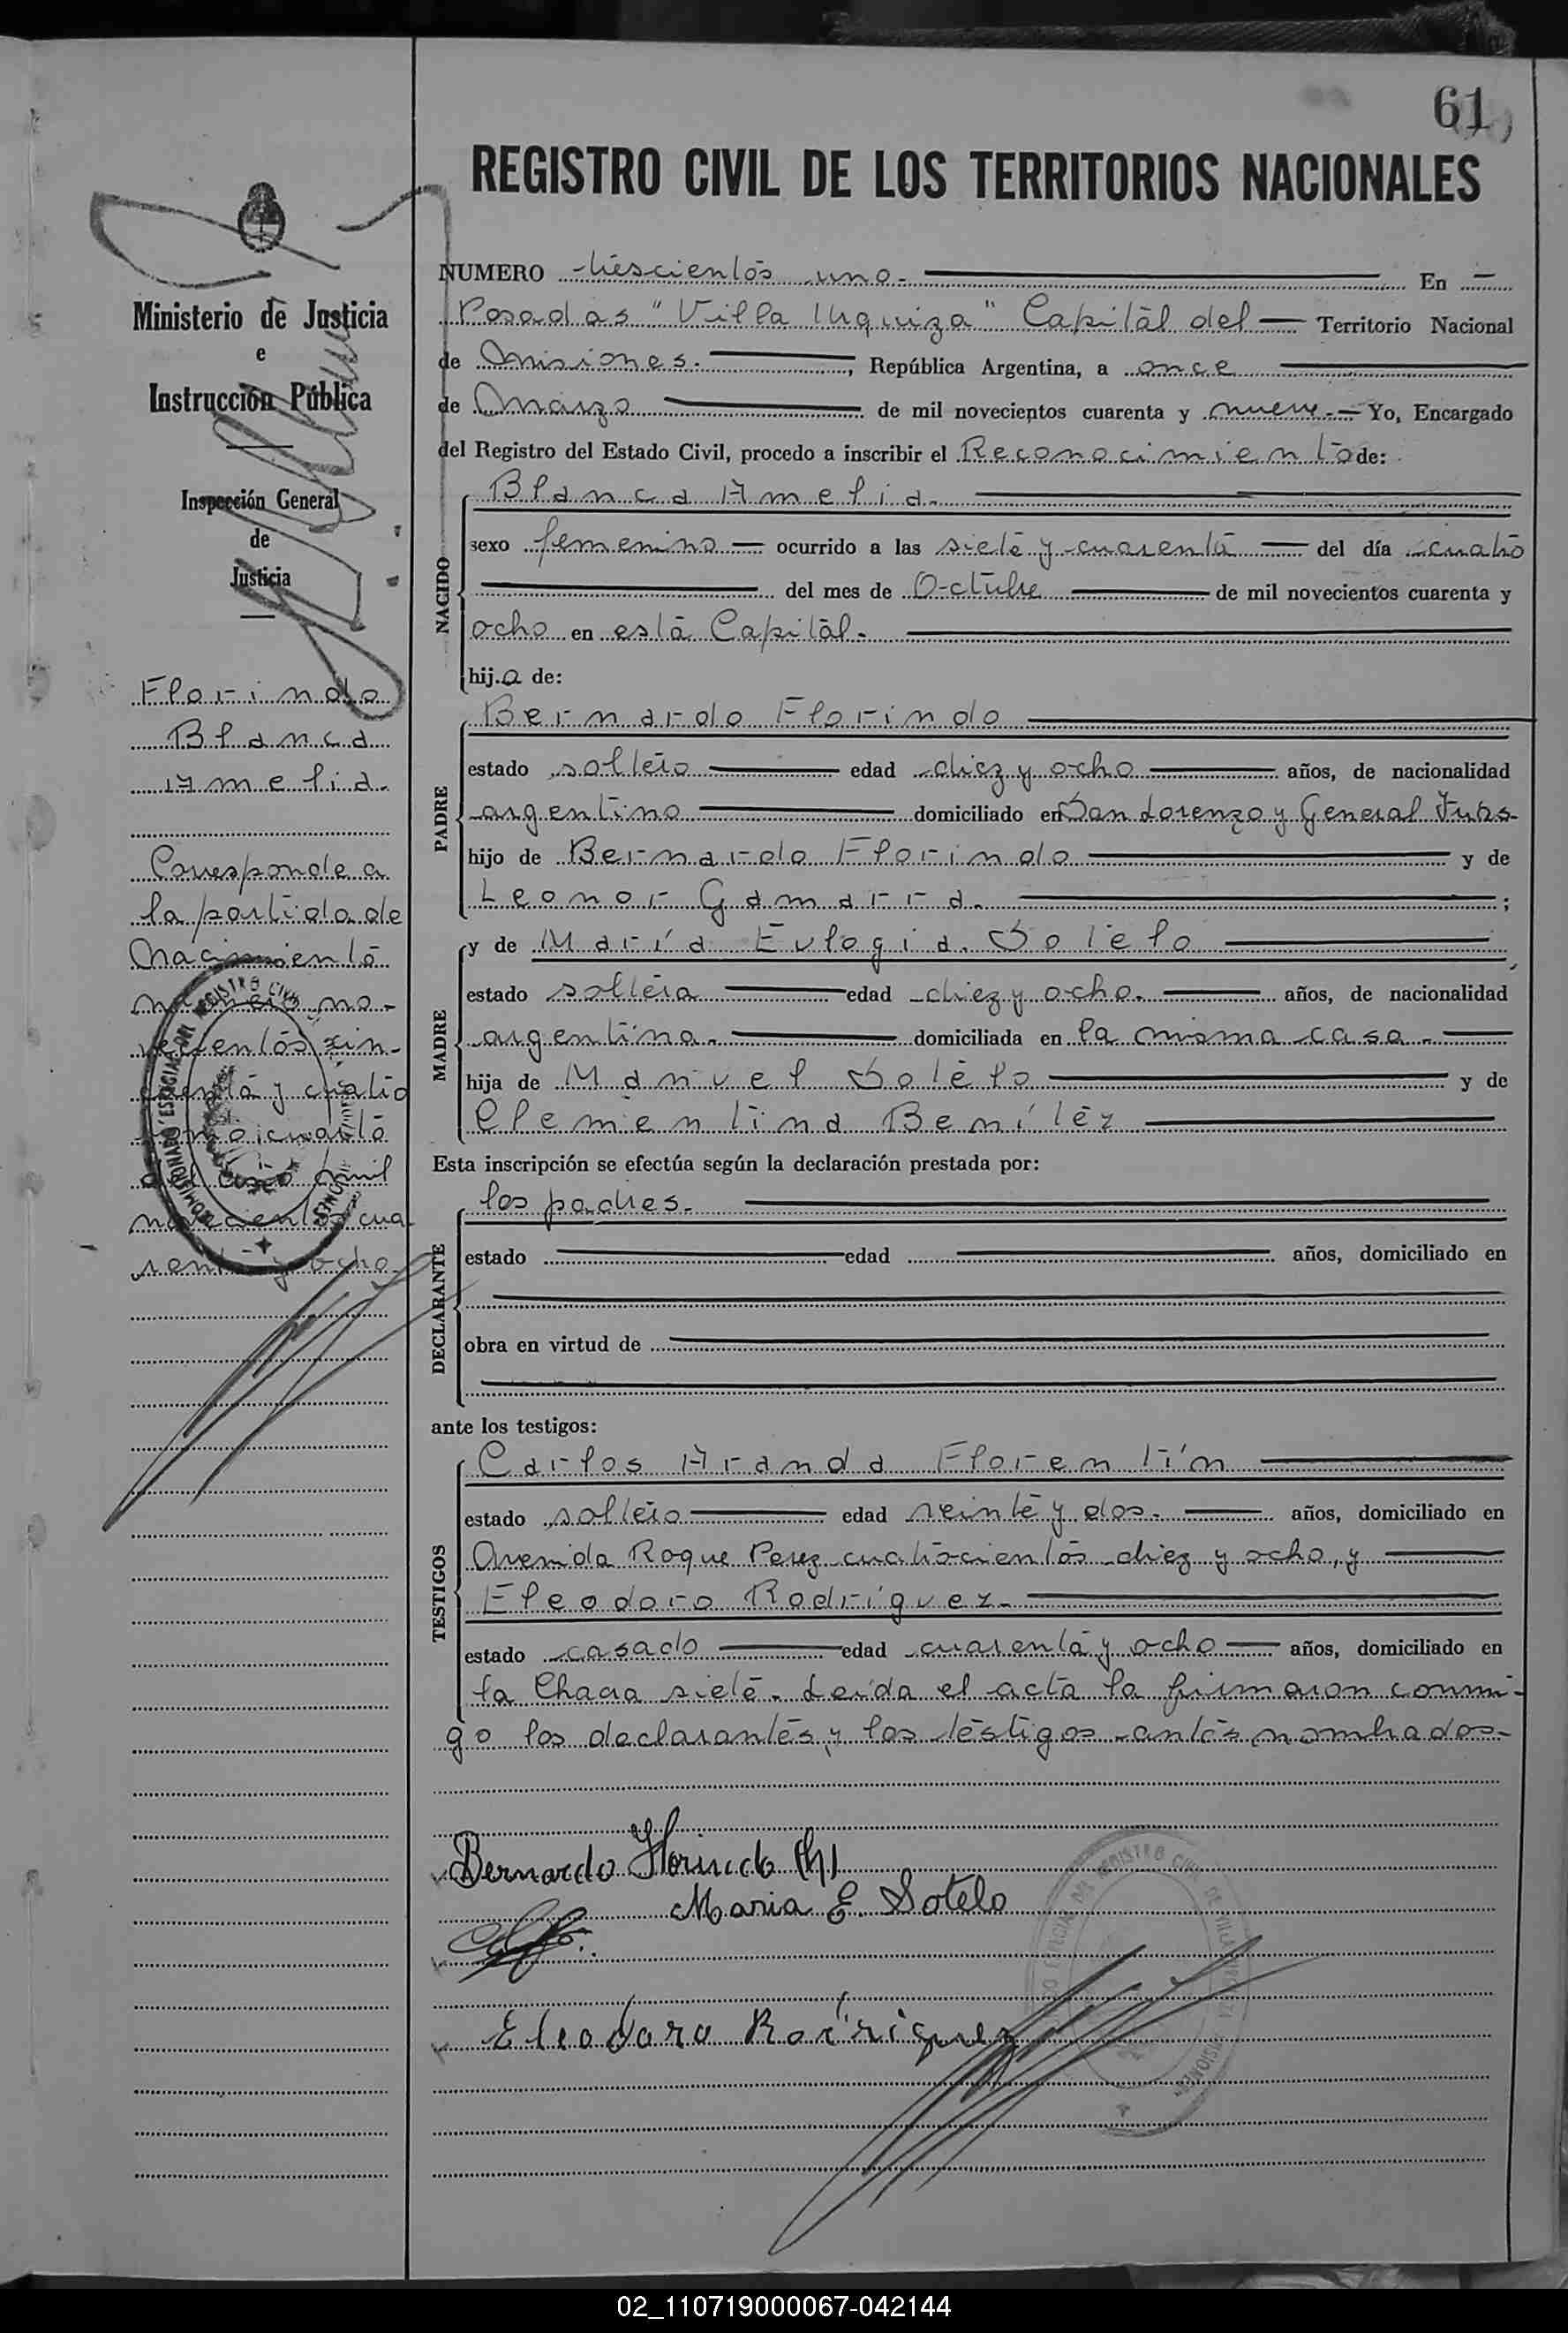 61
REGISTRO CIVIL DE LOS TERRITORIOS NACIONALES
Ministerio de Justicia
e
Instrucción Pública
Inspección General
de
Justicia
Florindo
Blanca
Amelia.
Corresponde a
la partida de
Nacimiento
numero no-
vecientos cin-
cuenta y cuatro
tomo cuarto
del año mil
novecientos cua
renta y ocho.
NUMERO trescientos uno. En
Posadas "Villa Urquiza" Capital del Territorio Nacional
de Misiones. , República Argentina, a once
de Marzo de mil novecientos cuarenta y nueve. Yo, Encargado
del Registro del Estado Civil, procedo a inscribir el Reconocimiento de:
NACIDO
Blanca Amelia.
sexo femenino ocurrido a las siete y cuarenta del día cuatro
del mes de Octubre de mil novecientos cuarenta y
ocho en esta Capital.
hij.a de:
PADRE
Bernardo Florindo
estado soltero edad diez y ocho años, de nacionalidad
argentino domiciliado en San Lorenzo y General
hijo de Bernardo Florindo y de
Leonor Gamarra. ;
MADRE
y de María Eulogia Sotelo ,
estado soltera edad diez y ocho. años, de nacionalidad
argentina. domiciliada en la misma casa.
hija de Manuel Sotelo y de
Clementina Benítez
Esta inscripción se efectúa según la declaración prestada por:
DECLARANTE
los padres.
estado edad años, domiciliado en
obra en virtud de
ante los testigos:
TESTIGOS
Carlos Aranda Florentín
estado soltero edad veinte y dos. años, domiciliado en
Avenida Roque Perez cuatrocientos diez y ocho, y
Eleodoro Rodríguez.
estado casado edad cuarenta y ocho años, domiciliado en
la Chacra siete. Leída el acta la firmaron conmi-
go los declarantes, y los testigos antes nombrados.
Bernardo Florindo (h)
Maria E. Sotelo
Eleodoro Rodriguez
02_110719000067-042144